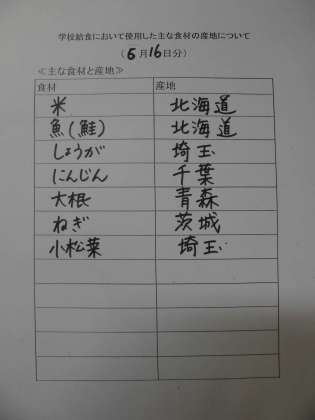 学校給食において使用した主な食材の産地について
(6月16日分)
≪主な食材と産地≫
食材 産地
米 北海道
魚(鮭) 北海道
しょうが 埼玉
にんじん 千葉
大根 青森
ねぎ 茨城
小松菜 埼玉